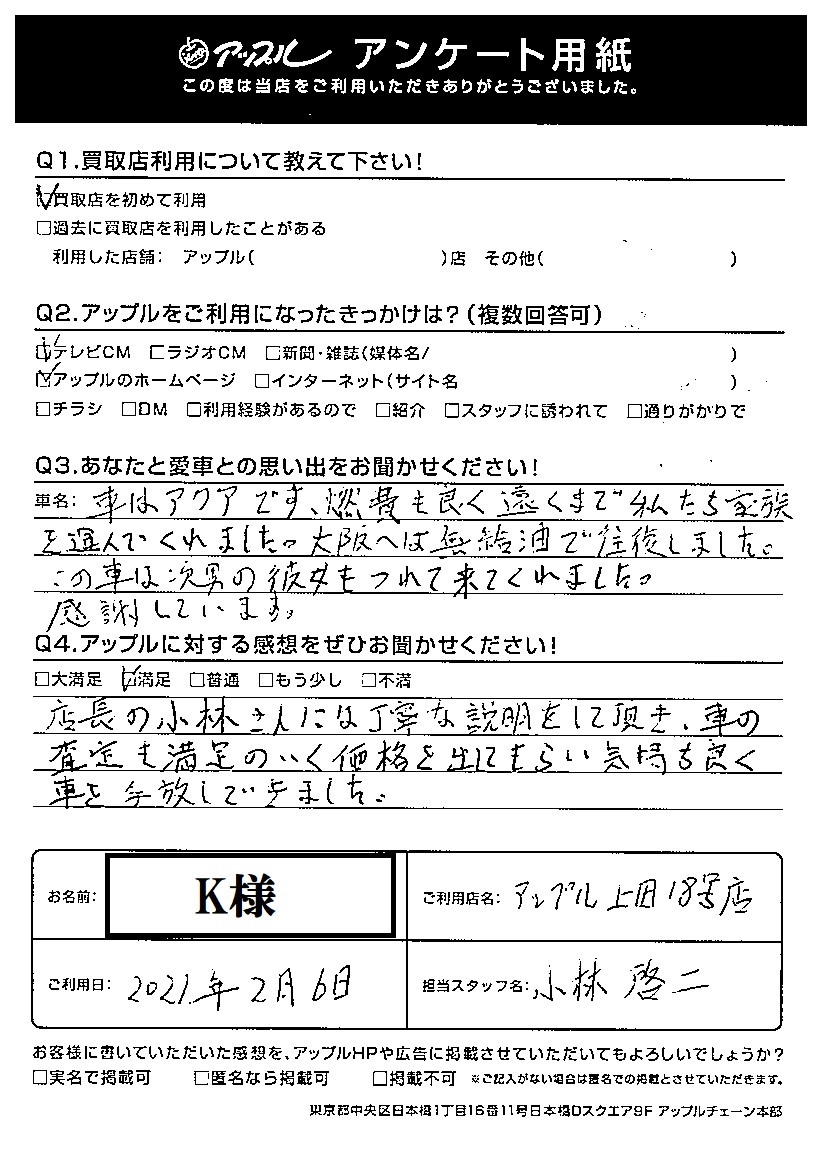 アップル アンケート用紙
この度は当店をご利用いただきありがとうございました。
Q1.買取店利用について教えて下さい!
☑買取店を初めて利用
□過去に買取店を利用したことがある
利用した店舗: アップル( )店 その他( )
Q2.アップルをご利用になったきっかけは?(複数回答可)
☑テレビCM □ラジオCM □新聞・雑誌(媒体名/ )
☑アップルのホームページ □インターネット(サイト名 )
□チラシ □DM □利用経験があるので □紹介 □スタッフに誘われて □通りがかりで
Q3.あなたと愛車との思い出をお聞かせください!
車名: 車はアクアです、燃費も良く遠くまで私たち家族
を運んでくれました。大阪へは無給油で往復しました。
この車は次男の彼女もつれて来てくれました。
感謝しています。
Q4.アップルに対する感想をぜひお聞かせください!
□大満足 ☑満足 □普通 □もう少し □不満
店長の小林さんには丁寧な説明をして頂き、車の
査定も満足のいく価格を出してもらい気持ち良く
車を手放しできました。
お名前: K様
ご利用店名: アップル上田18号店
ご利用日: 2021年2月6日
担当スタッフ名: 小林 啓二
お客様に書いていただいた感想を、アップルHPや広告に掲載させていただいてもよろしいでしょうか?
□実名で掲載可 □匿名なら掲載可 □掲載不可 ※ご記入がない場合は匿名での掲載とさせていただきます。
東京都中央区日本橋1丁目16番11号日本橋Dスクエア9F アップルチェーン本部